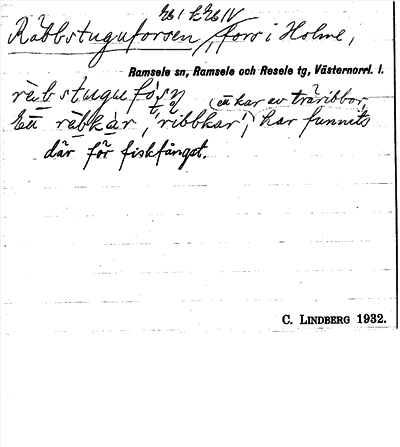 Råbbstuguforsen, fors i Holme,
Ramsele sn, Ramsele och Resele tg, Västernorrl. l.
(en kar av träribbor,
En räbkar, 'ribbkar', har funnits
där för fiskfångst.
C. LINDBERG 1932.